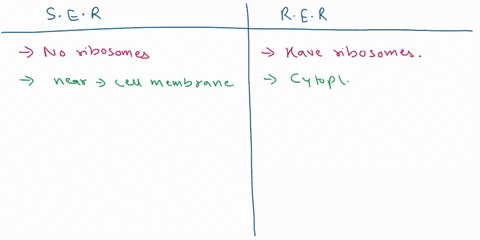 S.E.R
R.E.R
→ No ribosomes
→ Have ribosomes.
→ near → cell membrane
→ Cytopl.